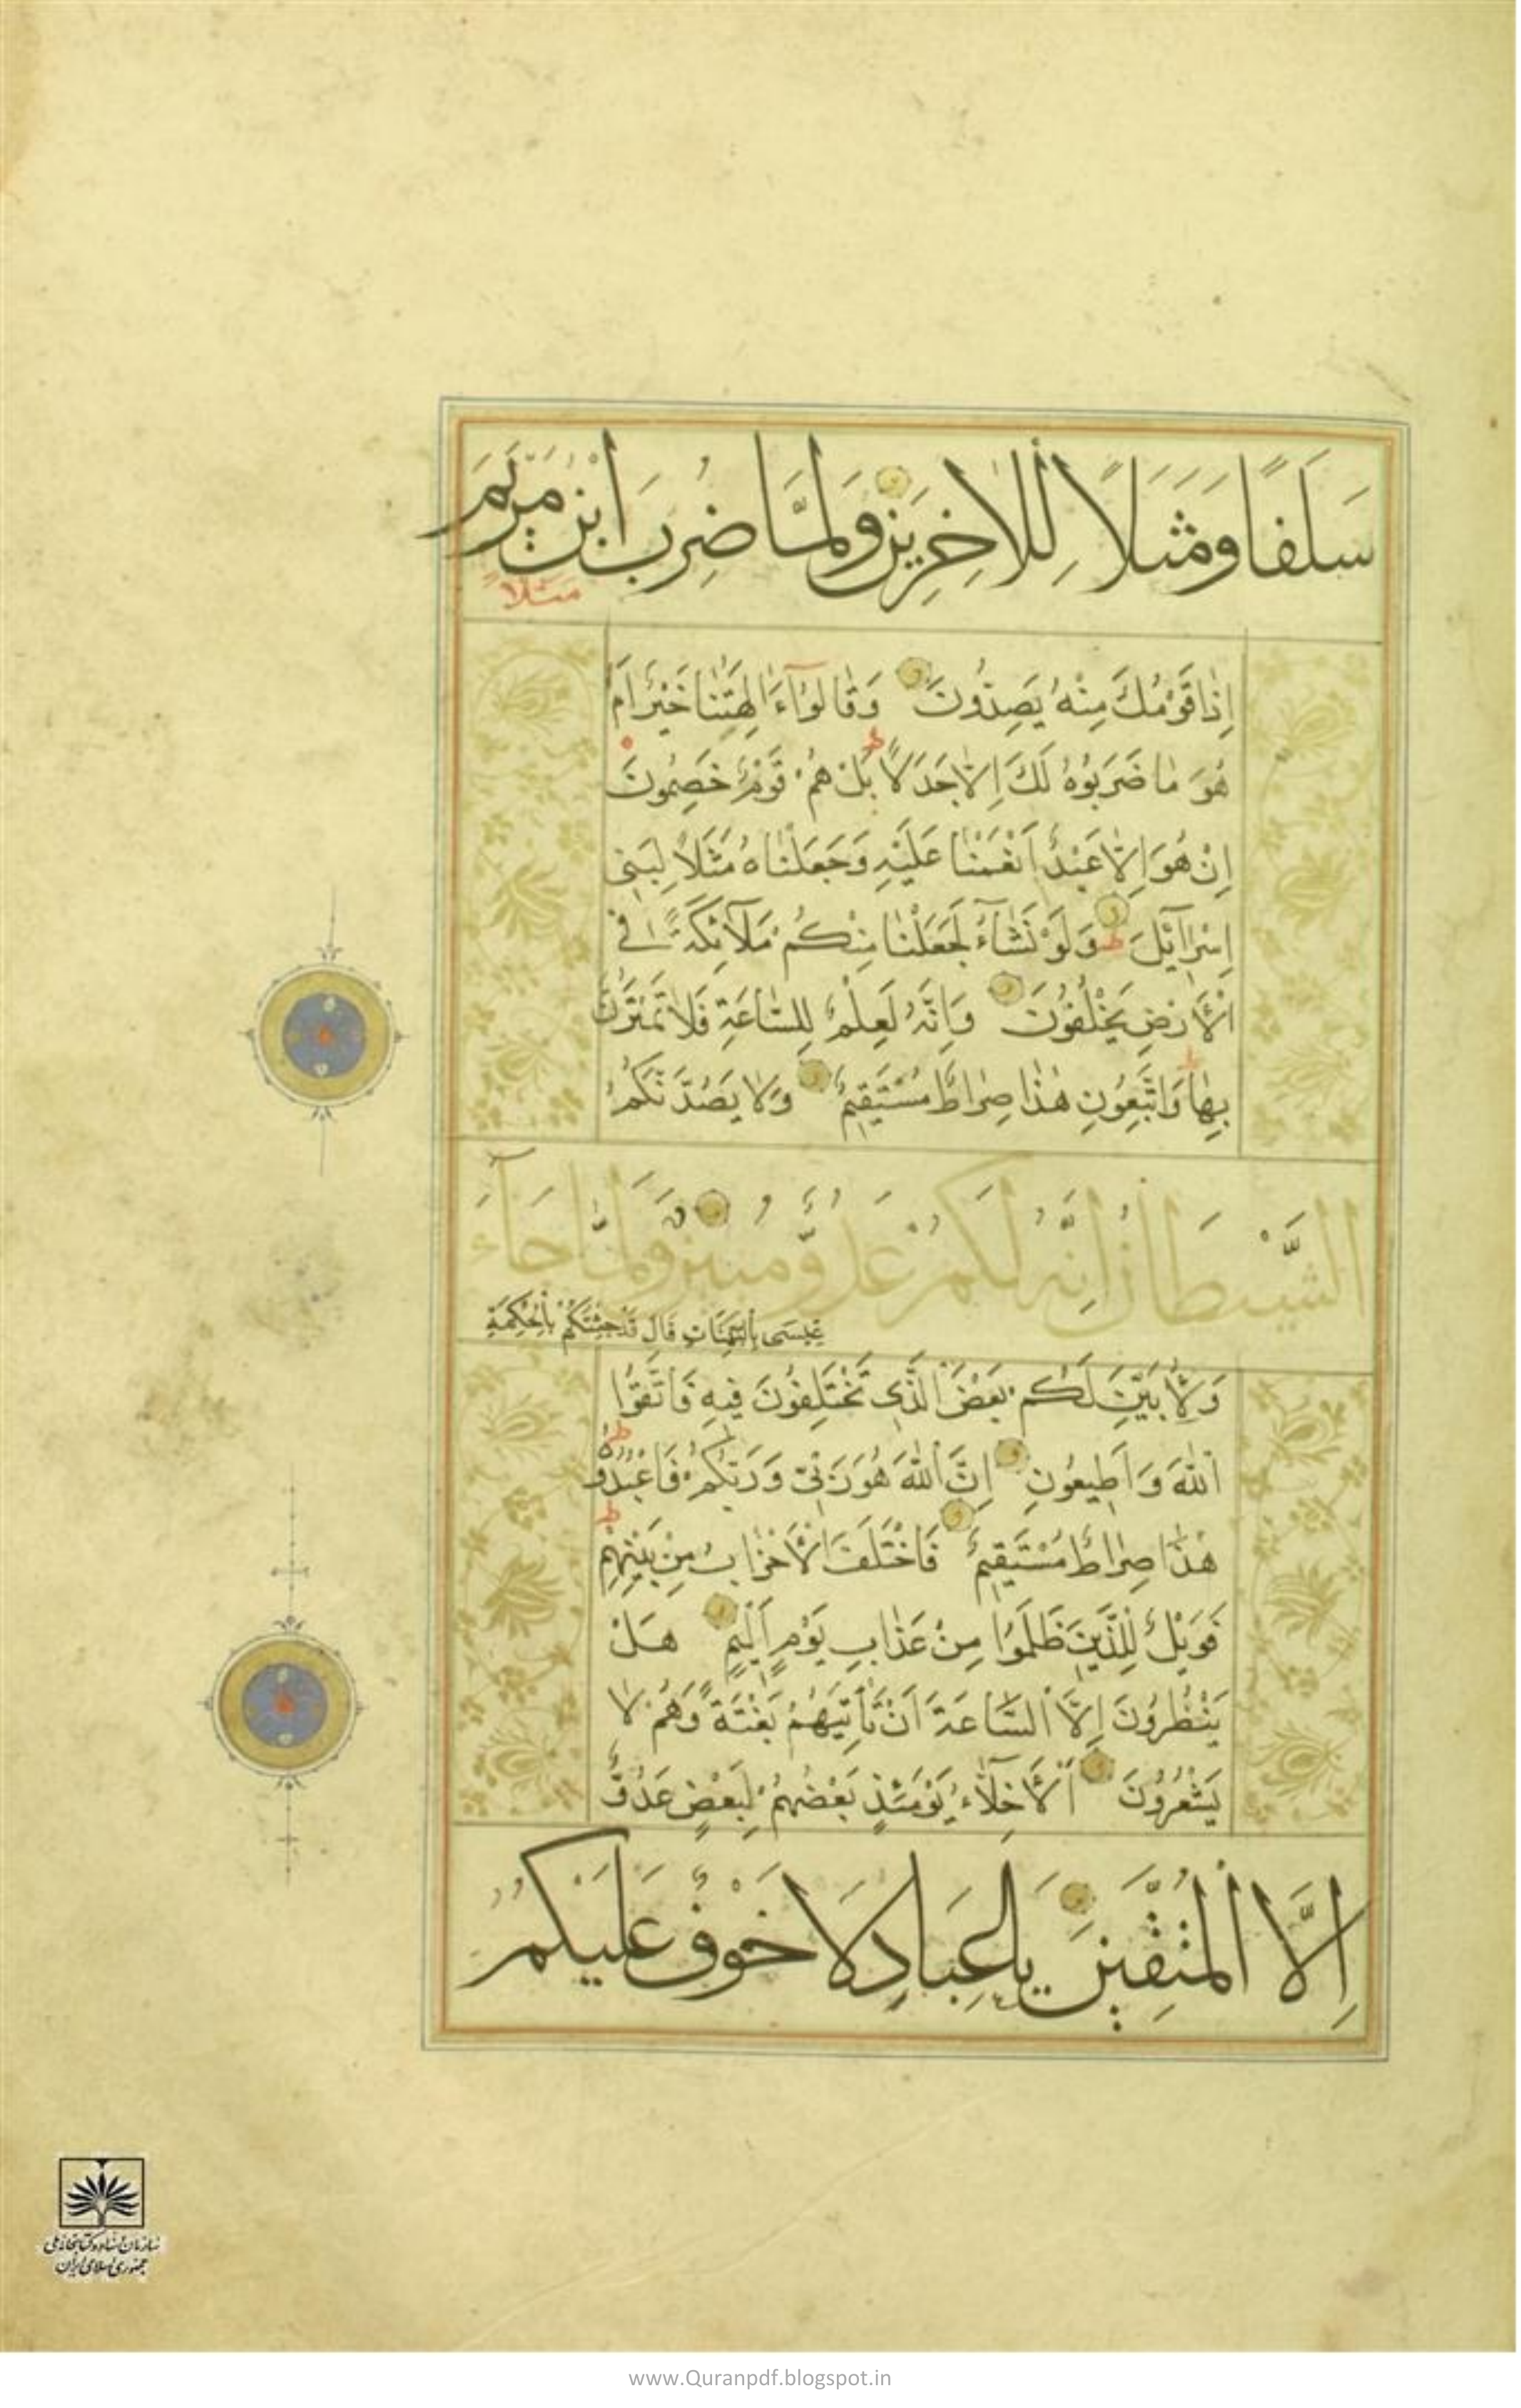 سَلَفًا وَمَثَلًا لِلْاٰخِرِينَ وَلَمَّا ضُرِبَ ابْنُ مَرْيَمَ
مَثَلًا
اِذَا قَوْمُكَ مِنْهُ يَصِدُّونَ وَقَالُوٓا ءَاٰلِهَتُنَا خَيْرٌ اَمْ
هُوَ مَا ضَرَبُوهُ لَكَ اِلَّا جَدَلًا بَلْ هُمْ قَوْمٌ خَصِمُونَ
اِنْ هُوَ اِلَّا عَبْدٌ اَنْعَمْنَا عَلَيْهِ وَجَعَلْنَاهُ مَثَلًا لِبَنِى
اِسْرَآئِلَ وَلَوْ نَشَآءُ لَجَعَلْنَا مِنْكُمْ مَلَآئِكَةً فِى
الْاَرْضِ يَخْلُفُونَ وَاِنَّهُ لَعِلْمٌ لِلسَّاعَةِ فَلَا تَمْتَرُنَّ
بِهَا وَاتَّبِعُونِ هٰذَا صِرَاطٌ مُسْتَقِيمٌ وَلَا يَصُدَّنَّكُمُ
الشَّيْطَانُ اِنَّهُ لَكُمْ عَدُوٌّ مُبِينٌ وَلَمَّا جَآءَ
عِيسَى بِالْبَيِّنَاتِ قَالَ قَدْ جِئْتُكُمْ بِالْحِكْمَةِ
وَلِاُبَيِّنَ لَكُمْ بَعْضَ الَّذِى تَخْتَلِفُونَ فِيهِ فَاتَّقُوا
اللّٰهَ وَاَطِيعُونِ اِنَّ اللّٰهَ هُوَ رَبِّى وَرَبُّكُمْ فَاعْبُدُوهُ
هٰذَا صِرَاطٌ مُسْتَقِيمٌ فَاخْتَلَفَ الْاَحْزَابُ مِنْ بَيْنِهِمْ
فَوَيْلٌ لِلَّذِينَ ظَلَمُوا مِنْ عَذَابِ يَوْمٍ اَلِيمٍ هَلْ
يَنْظُرُونَ اِلَّا السَّاعَةَ اَنْ تَأْتِيَهُمْ بَغْتَةً وَهُمْ لَا
يَشْعُرُونَ اَلْاَخِلَّآءُ يَوْمَئِذٍ بَعْضُهُمْ لِبَعْضٍ عَدُوٌّ
اِلَّا الْمُتَّقِينَ يَا عِبَادِ لَا خَوْفٌ عَلَيْكُمُ
سازمان اسناد و کتابخانه ملی
جمهوری اسلامی ایران
www.Quranpdf.blogspot.in